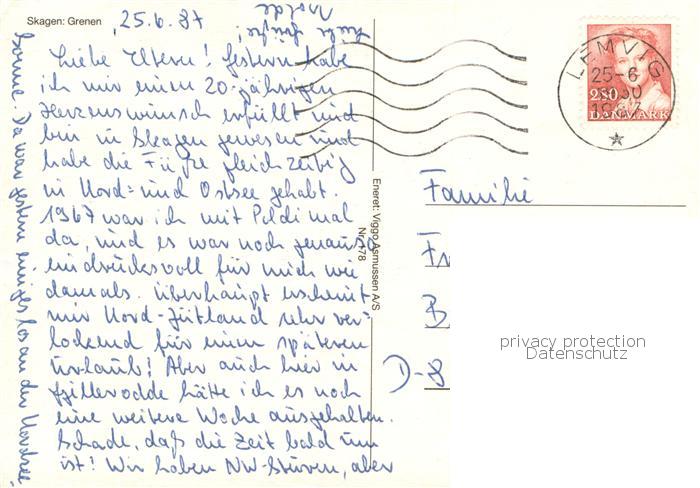 Skagen: Grenen
25.6.87
Liebe Eltern! Gestern habe
ich mir einen 20-jährigen
Herzenswunsch erfüllt und
bin in Skagen gewesen und
habe die Füße gleichzeitig
in Nord- und Ostsee gehabt.
1967 war ich mit Poldi mal
da, und es war noch genauso
eindrucksvoll für mich wie
damals. Überhaupt erscheint
mir Nord-Jütland sehr ver-
lockend für einen späteren
Urlaub! Aber auch hier in
hätte ich es noch
eine weitere Woche ausgehalten.
Schade, daß die Zeit bald um
ist! Wir haben NW-Sturm, aber
Sonne. Da war gestern einiges los an der Nordsee.
Liebe Grüße!
Isolde
Eneret: Viggo Asmussen A/S
Nr. 178
LEMVIG
25-6
280
DANMARK
Familie
D-8
privacy protection
Datenschutz